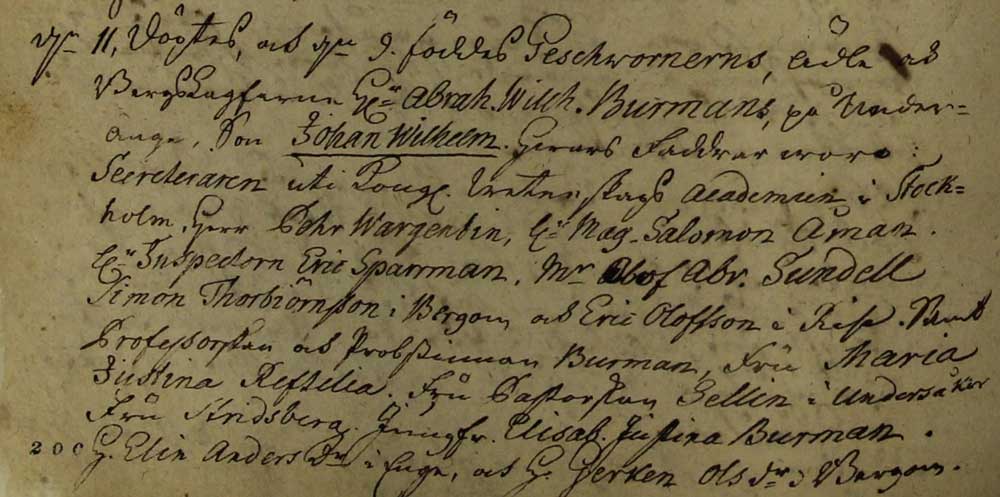 dn 11, döptes, och dn 9. föddes Geschwornerns, ädle och
Bergslagfarne Hr Abrah. Wilh. Burmans, på Under-
ånge, Son Johan Wilhelm. Hwars Faddrar woro:
Secreteraren uti Kongl. Wetenskaps Academien i Stock-
holm, Herr Pehr Wargentin, Hr Mag. Salomon Åman.
Hr Inspectorn Eric Sparrman, Mr Olof Abr. Sundell
Simon Thorbiörnsson i Bergom och Eric Olofsson i Rise. Samt
Professorskan och Probstinnan Burman, Fru Maria
Justina Reftelia. Fru Pastorskan Sellin i Undersåker
Fru Stridsberg. Jungfr. Elisab. Justina Burman.
200 H. Elin Anders Dr i Enge, och H. Gerken Ols dr i Bergom.